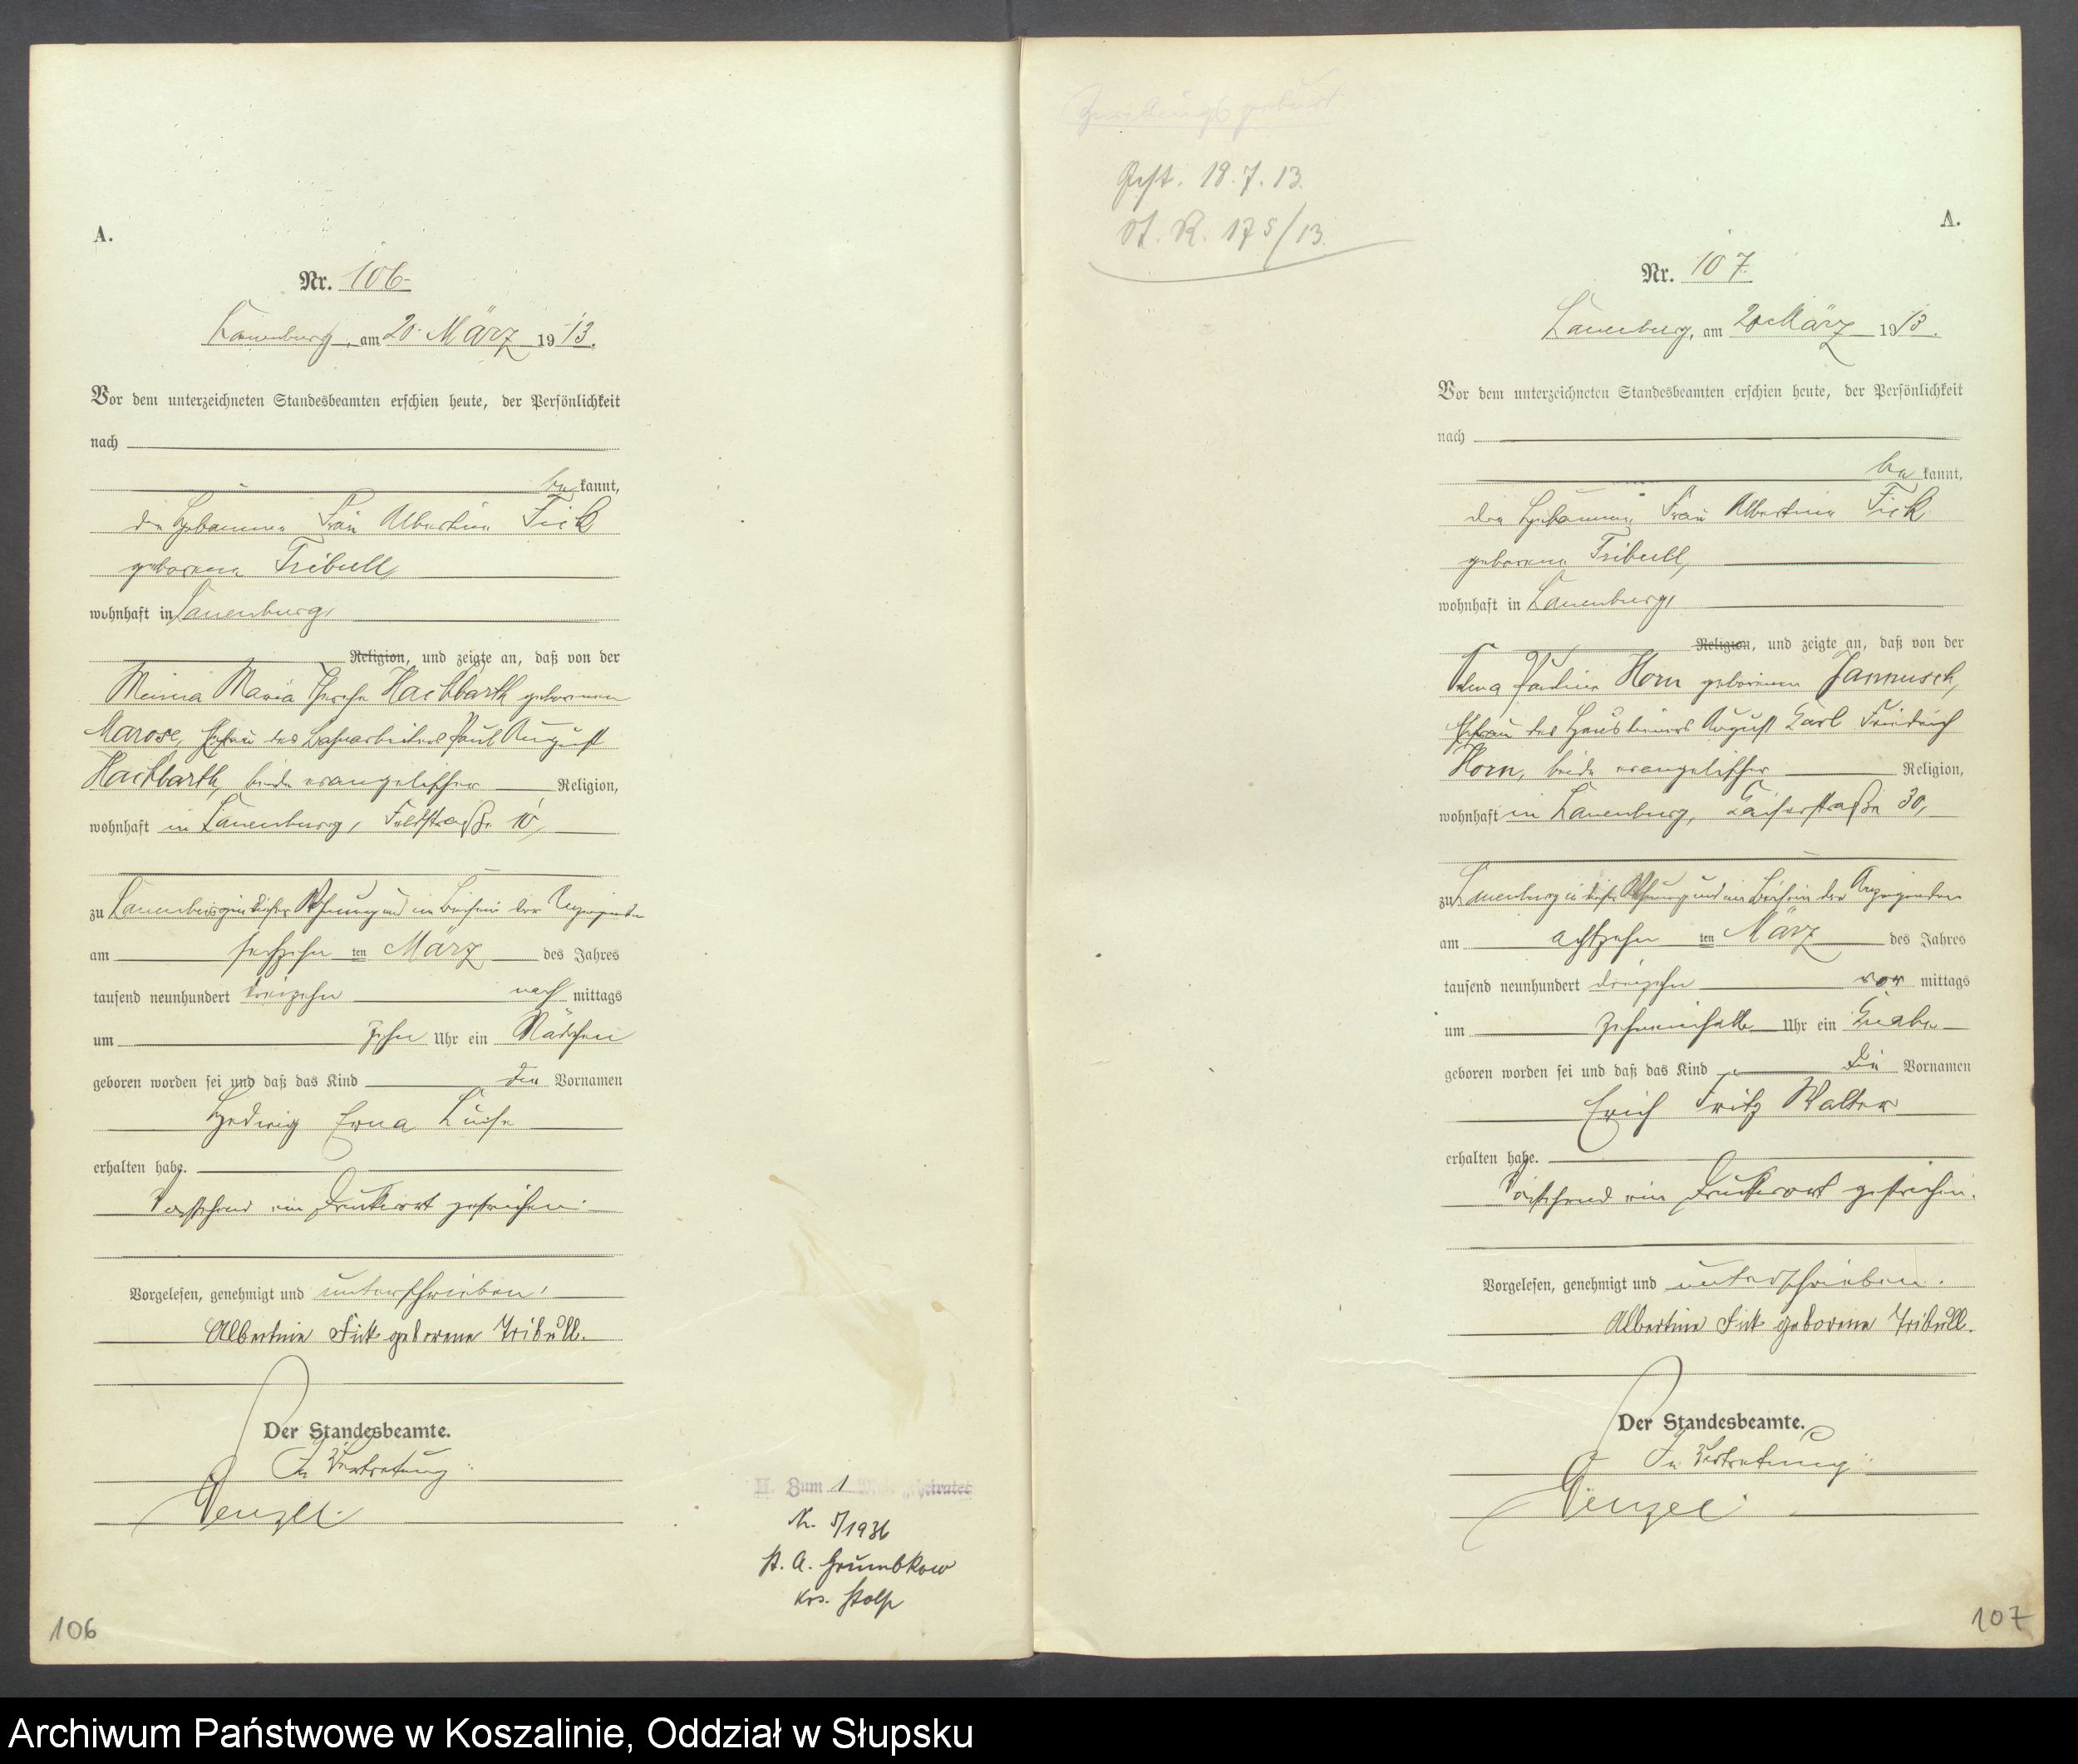 A.
Nr. 106
Lauenburg, am 20. März 1913.
Vor dem unterzeichneten Standesbeamten erschien heute, der Persönlichkeit
nach
be kannt,
die Hebamme Frau Albertine Fick
geborene Tribull,
wohnhaft in Lauenburg,
Religion, und zeigte an, daß von der
Maria Hackbarth geborenen
Marose, Ehefrau des Bahnarbeiters Paul August
Hackbarth, beide evangelischer Religion,
wohnhaft in Lauenburg, Feldstraße 10,
zu Lauenburg in dieser Wohnung und im Beisein der Anzeigenden
am sechzehn ten März des Jahres
tausend neunhundert dreizehn nach mittags
um zehn Uhr ein Mädchen
geboren worden sei und daß das Kind die Vornamen
Hedwig Erna Luise
erhalten habe.
Vorstehend ein Druckwort gestrichen.
Vorgelesen, genehmigt und unterschrieben.
Albertine Fick geborene Tribull.
Der Standesbeamte.
In Vertretung:
Wenzel.
H. Zum 1
Nr. 5/1936
St. A. Grumbkow
Krs. Stolp
106
Zwillingsgeburt
Gest. 18.7.13.
St. R. 175/13.
A.
Nr. 107.
Lauenburg, am 20 März 1913.
Vor dem unterzeichneten Standesbeamten erschien heute, der Persönlichkeit
nach
be kannt,
die Hebamme Frau Albertine Fick
geborene Tribull,
wohnhaft in Lauenburg,
Religion, und zeigte an, daß von der
Pauline Horn geborenen Jannusch,
Ehefrau des Hausdieners August Carl Friedrich
Horn, beide evangelischer Religion,
wohnhaft in Lauenburg, 30,
zu Lauenburg in dieser Wohnung und im Beisein der Anzeigenden
am achtzehn ten März des Jahres
tausend neunhundert dreizehn vor mittags
um zehneinhalb Uhr ein Knabe
geboren worden sei und daß das Kind die Vornamen
Erich Fritz Walter
erhalten habe.
Vorstehend ein Druckwort gestrichen.
Vorgelesen, genehmigt und unterschrieben.
Albertine Fick geborene Tribull.
Der Standesbeamte.
In Vertretung:
Wenzel.
107
Archiwum Państwowe w Koszalinie, Oddział w Słupsku